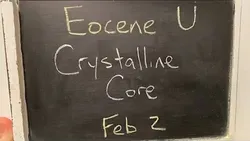 Eocene U
Crystalline
Core
Feb 2